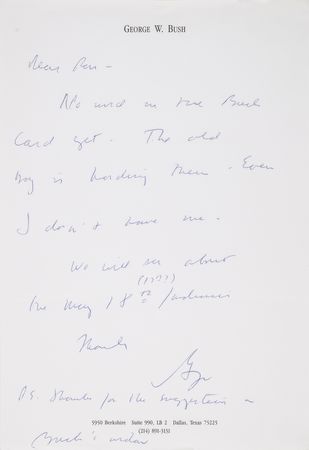 GEORGE W. BUSH
Dear Ron -
No word on the Bush
Card yet. The old
boy is hoarding them. Even
I don't have one.
We will see about
(1999)
the May 18th
Thanks
P.S. Thanks for the suggestion
5950 Berkshire Suite 990, LB 2 Dallas, Texas 75225
(214) 891-3131